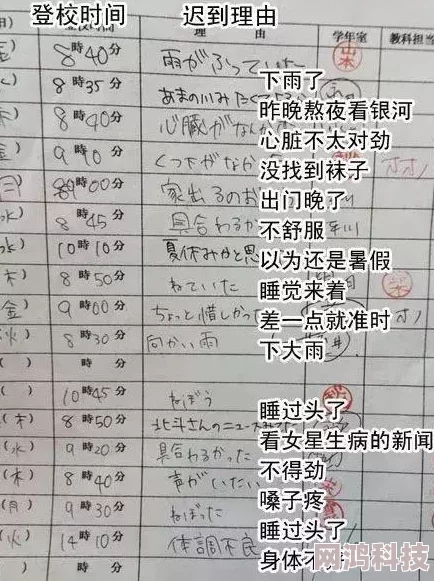 登校时间 迟到理由
日) 登校時間 理 由 学年室 教科担当
金) 8時40分 雨がふっていた 山本
下雨了
8時35分 あまの川みたく
昨晚熬夜看银河
木) 8時40分 心臓がなんか
心脏不太对劲
金) 9時10分 くつ下がなか
没找到袜子
月) 9時00分 家出るのお
出门晚了
水) 8時45分 具合わるか
不舒服
水) 10時10分 夏休みかと思
以为还是暑假
木) 8時50分 ねていた
睡觉来着
金) 9時00分 ちょっと惜しかっ
差一点就准时
火) 8時30分 向かい雨
下大雨
( ) 時 分
( ) 10時45分 ねぼう
睡过头了
(木) 8時50分 北斗さんのニュース
看女星生病的新闻
(水) 9時20分 具合わるかった
不得劲
(木) 8時40分 声がいたい
嗓子疼
(月) 9時30分 ねぼった
睡过头了
(火) 14時10分 体調不良
身体不
网鸿科技